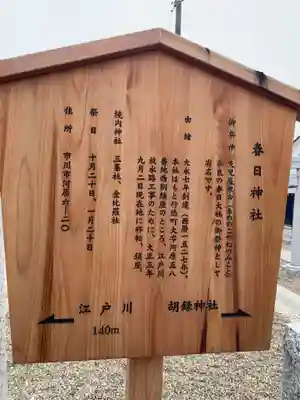 春日神社
御祭神 天児屋根命(あめのこやねのみこと)
奈良の春日大社の御祭神として
有名です。
由緒 大永七年創建(西暦一五二七年)
本社はもと行徳町大字河原五八
番地西側鎮座のところ、江戸川
放水路工事のために、大正五年
九月二日現在地に移転、鎮座。
境内神社 三峯社、金比羅社
祭日 十月二十日、一月二十日
住所 市川市河原六-二〇
江戸川 胡録神社
140m